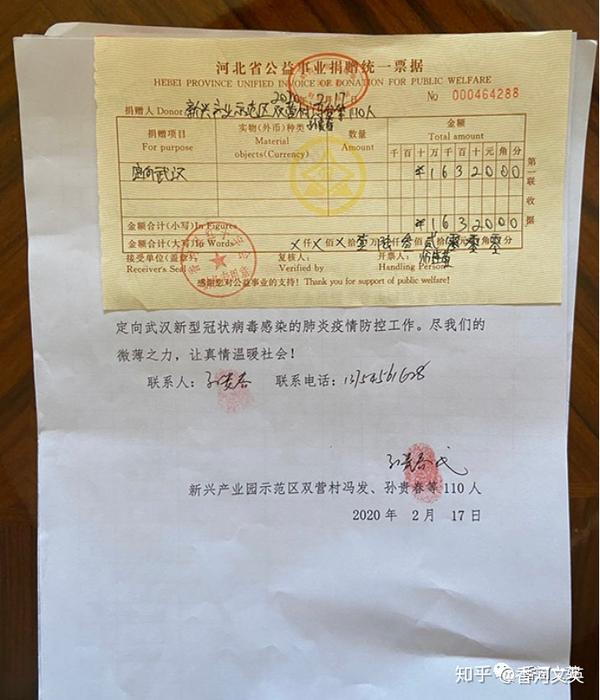 河北省公益事业捐赠统一票据
HEBEI PROVINCE UNIFIED INVOICE OF DONATION FOR PUBLIC WELFARE
2020 2 17
No 000464288
捐赠人 Donor 新兴产业示范区双营村冯发等110人
孙贵春
捐赠项目 For purpose
实物(外币)种类 Material objects(Currency)
数量 Amount
金额 Total amount
千百十万千百十元角分
定向武汉
¥1632000
第一联 收据
金额合计(小写)In Figures ¥1632000
金额合计(大写)In Words ×仟×佰×拾壹万陆仟叁佰贰拾零元零角零分
接受单位(盖章) Receiver's Seal
复核人: Verified by
开票人: Handling Person
感谢您对公益事业的支持! Thank you for support of public welfare!
定向武汉新型冠状病毒感染的肺炎疫情防控工作。尽我们的
微薄之力，让真情温暖社会！
联系人：孙贵春 联系电话：
孙贵春代
新兴产业园示范区双营村冯发、孙贵春等110人
2020 年 2 月 17日
知乎 @香河文英